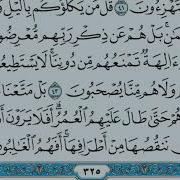 يَسْتَهْزِءُونَ ٤١ قُلْ مَن يَكْلَؤُكُم بِالَّيْلِ
بَلْ هُمْ عَن ذِكْرِ رَبِّهِم مُّعْرِضُو
ءَالِهَةٌ تَمْنَعُهُم مِّن دُونِنَا لَا يَسْتَطِيعُو
وَلَا هُم مِّنَّا يُصْحَبُونَ ٤٣ بَلْ مَتَّعْنَا
هُمْ حَتَّىٰ طَالَ عَلَيْهِمُ الْعُمُرُ أَفَلَا يَرَوْنَ أَ
نَنقُصُهَا مِنْ أَطْرَافِهَا أَفَهُمُ الْغَٰلِبُو
٣٢٥